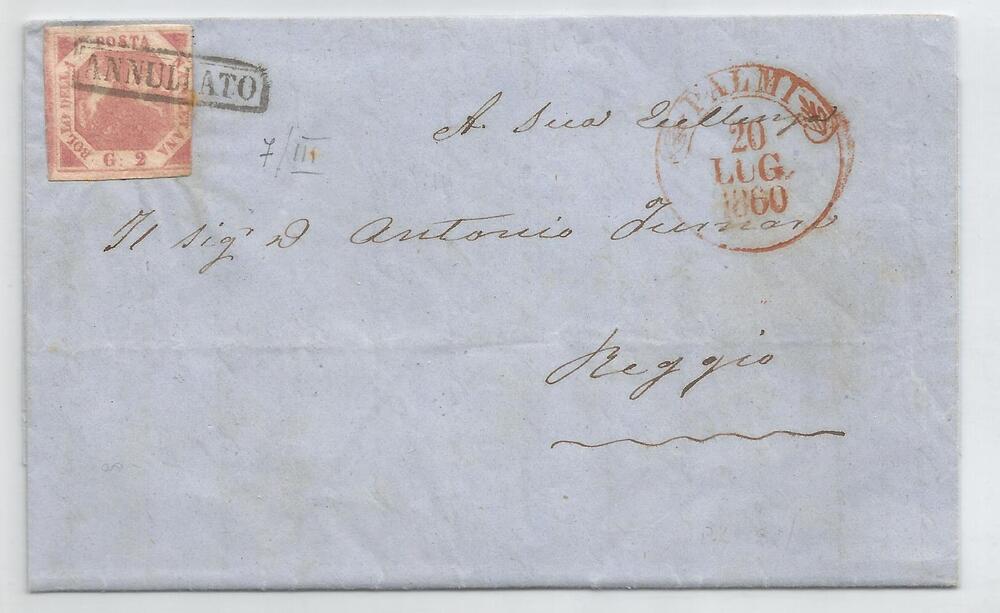 POSTA
BOLLO DELL
G. 2
ANNULLATO
PALMI
20
LUG.
1860
7/III
A Sua Eccellenza
Il Sig.r D Antonio
Reggio